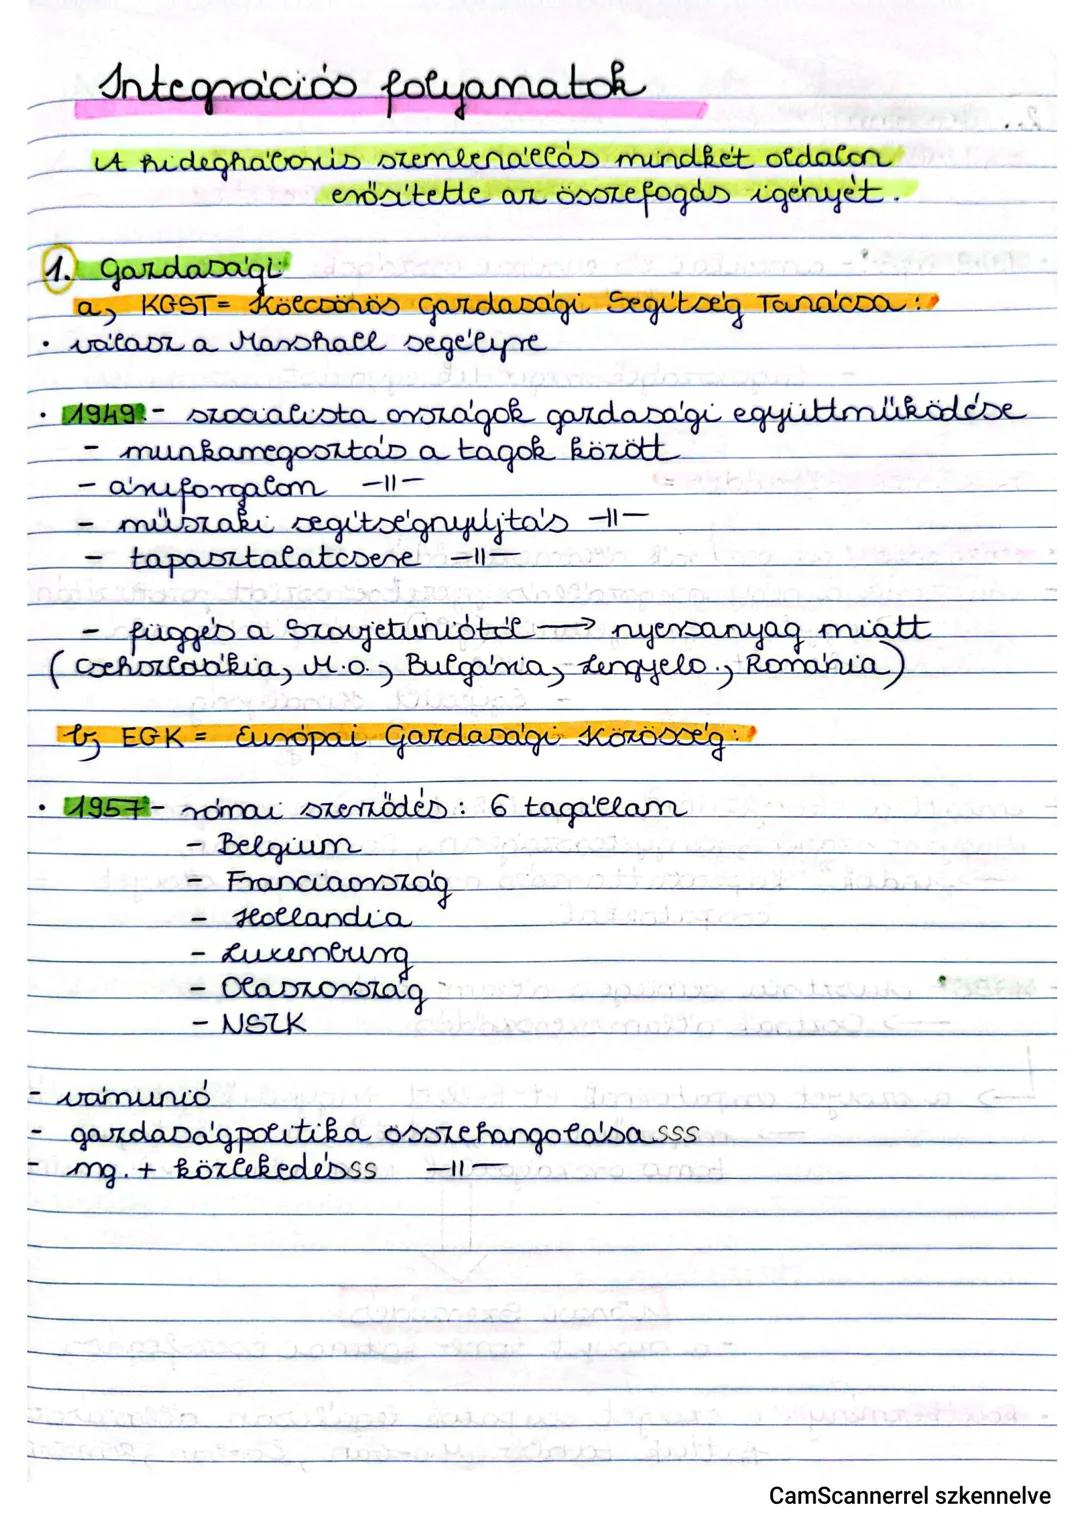 Integrációs folyamatok
A hidegháborús szembenállás mindkét oldalon
erősítette az összefogás igényét.
1. Gazdasági:
a, KGST = Kölcsönös Gazdasági Segítség Tanácsa:
• válasz a Marshall segélyre
• 1949 - szocialista országok gazdasági együttműködése
- munkamegosztás a tagok között
- áruforgalom -||-
- műszaki segítségnyújtás -||-
- tapasztalatcsere -||-
- függés a Szovjetuniótól → nyersanyag miatt
(Csehszlovákia, M.o., Bulgária, Lengyelo., Románia)
b, EGK = Európai Gazdasági Közösség:
• 1957 - római szerződés: 6 tagállam
- Belgium
- Franciaország
- Hollandia
- Luxemburg
- Olaszország
- NSZK
- vámunió
- gazdaságpolitika összehangolása sss
- mg. + közlekedés ss -||-
CamScannerrel szkennelve